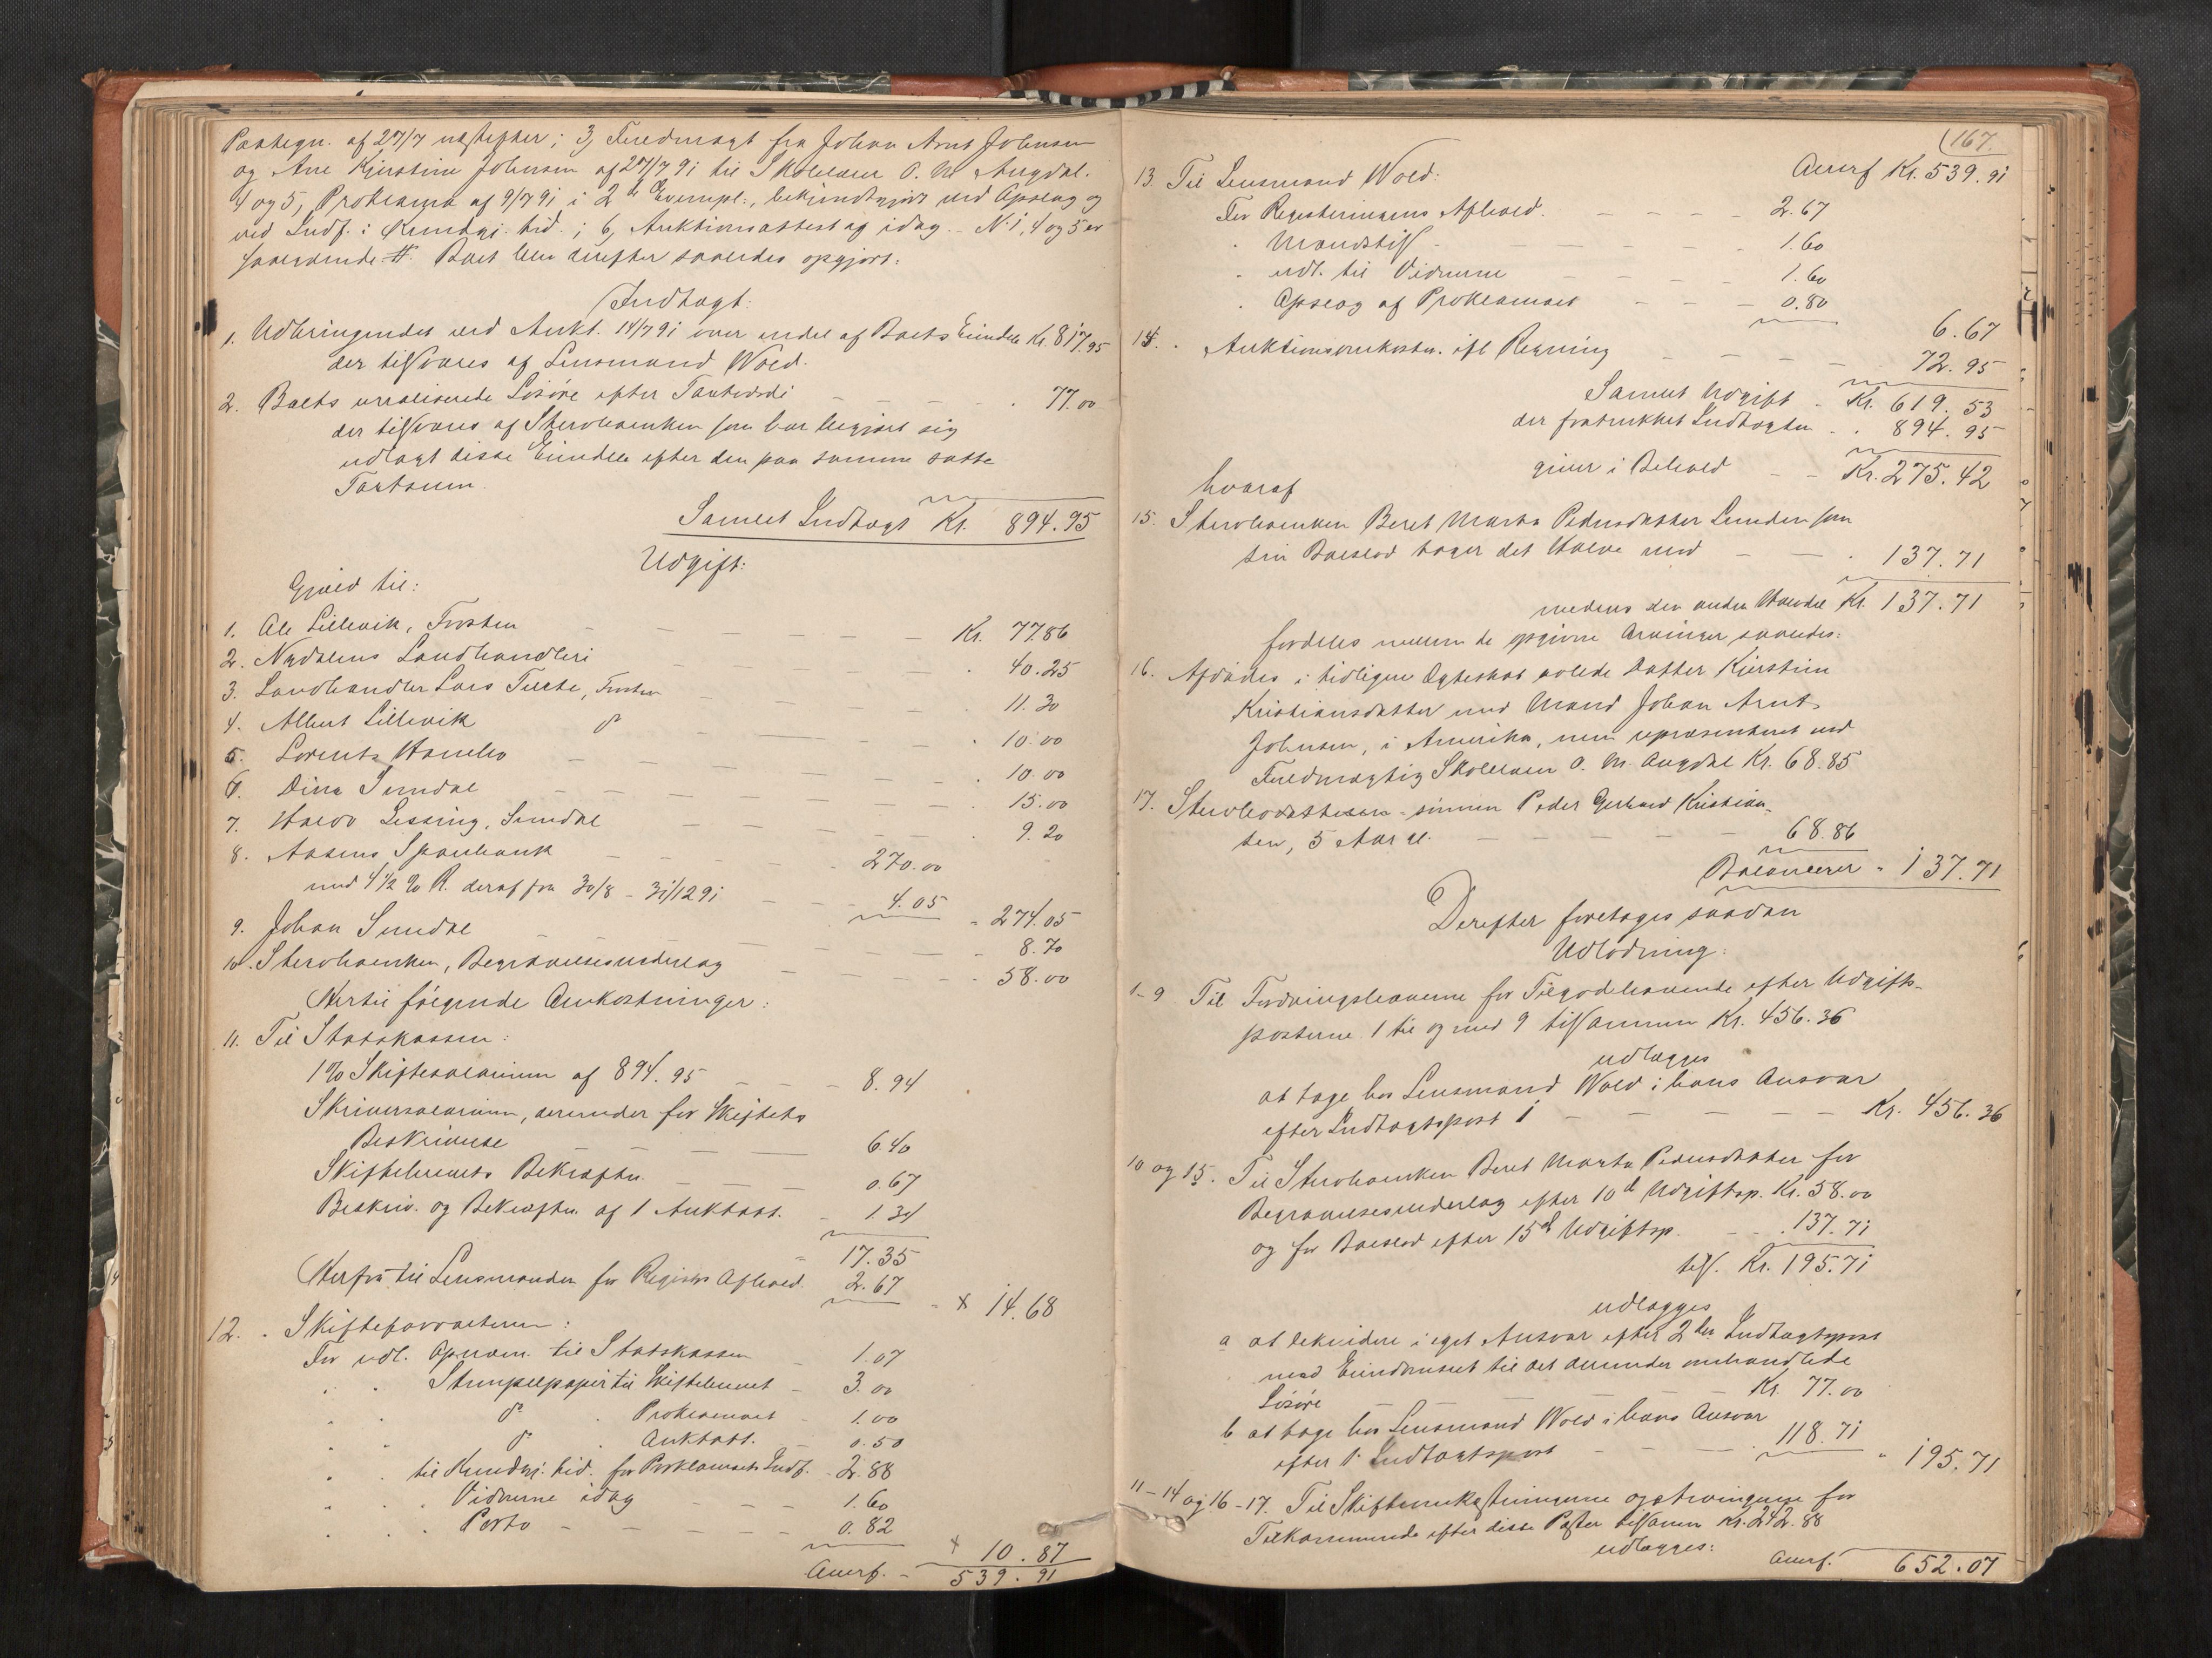 Paategn. af 27/7 næstefter; 3, Fuldmagt fra Johan Arnt Johnsen
og Ane Kjerstine Johnsen af 27/7 91 til Skolelærer O. M. Augdal.
4 og 5, Proklama af 9/7 91 i 2de Exempl., bekjendtgjort ved Opslag og
ved Indf. i Kundgj. tid.; 6, Auktionsattest af idag. N: 1, 4 og 5 er
saalydende #. Boet blev derefter saaledes opgjort:
Indtægt:
1. Udbringendet ved Aukt. 14/7 91 over endel af Boets Eiendele Kr. 817.95
der tilsvares af Lensmand Wold.
2. Boets urealiserede Løsøre efter Taxtværdi - - - 77.00
der tilsvares af Stervboenken som har begjært sig
udlagt disse Eiendele efter den paa samme satte
Taxtsum.
Samlet Indtægt Kr. 894.95
Udgift:
Gjæld til:
1. Ole Lillevik, Frosten - - - Kr. 77.86
2. Nydalens Landhandleri - - - 40.25
3. Landhandler Lars Tuite, Frosten - - - 11.30
4. Albert Lillevik do - - - 10.00
5. Lorents Hambo - - - 10.00
6. Dina Sundal - - - 15.00
7. Halvor Lessing, Sundal - - - 9.20
8. Aasens Sparebank - - 270.00
med 4 1/2 % R. deraf fra 30/8 - 31/12 91 - - 4.05 - 274.05
9. Johan Sundal - - - 8.70
10. Stervboenken, Begravelsesudlæg - - - 58.00
Hertil følgende Omkostninger:
11. Til Statskassen:
1% Skiftesalarium af 894.95 - - - 8.94
Skriversalarium, derunder for Skiftets
Beskrivelse - - - 6.40
Skiftebrevets Bekræftn. - - - 0.67
Beskriv. og Bekræftn. af 1 Auktatt. - 1.34
17.35
Herfra til Lensmanden for Registr. Afhold. 2.67 - x 14.68
12. . Skifteforvalteren:
For udl. Opnævn. til Statskassen - 1.07
. . Stempelpapir til Skiftebrevet - 3.00
. . do . Proklamaet - 1.00
. . do . Auktatt. - 0.50
. . til Kundgj. tid. for Proklamaets Indf. - 2.88
. . . Vidnerne idag - - - 1.60
. . . Porto - - - 0.82
x 10.87
Overf. - 539.91
167.
Overf Kr. 539.91
13. Til Lensmand Wold:
For Registeringens Afhold. - - - 2.67
. Mandstils - - - 1.60
. udl. til Vidnerne - - - 1.60
. Opslag af Proklamaet - - - 0.80
6.67
14. . Auktionsomkostn. ifl Regning - - - 72.95
Samlet Udgift - Kr. 619.53
der fratrukket Indtægten . . 894.95
giver i Behold - - Kr. 275.42
hvoraf
15. Stervboenken Beret Marta Pedersdatter Sunden som
sin Boeslod tager det Halve med - - . 137.71
medens den anden Halvdel Kr. 137.71
fordeles mellem de opgivne Arvinger saaledes:
16. Afdødes i tidligere Ægteskab avlede Datter Kjerstine
Kristiansdatter med Mand Johan Arnt
Johnsen, i Amerika, men repræsenteret ved
Fuldmægtig Skolelærer O. M. Augdal Kr. 68.85
17. Stervbo - sønnen Peder Gerhard Kristian-
sen, 5 Aar gl. - - - 68.86
Balancerer . 137.71
Derefter foretages saadan
Udlodning:
1-9 Til Fordringshaverne for Tilgodehavende efter Udgifts-
posterne 1 til og med 9 tilsammen Kr. 456.36
udlægges
at tage hos Lensmand Wold i hans Ansvar
efter Indtægtspost 1 - - - Kr. 456.36
10 og 15. Til Stervboenken Beret Marta Pedersdatter for
Begravelsesudlæg efter 10de Udgiftsp. Kr. 58.00
og for Boeslod efter 15de Udgiftsp. - - . 137.71
tils. Kr. 195.71
udlægges
a at likvidere i eget Ansvar efter 2den Indtægtspost
mod Eiendomsret til det derunder omhandlede
Løsøre - - - Kr. 77.00
b at tage hos Lensmand Wold i hans Ansvar
efter 1. Indtægtspost - - - . 118.71 . 195.71
11-14 og 16-17. Til Skifteomkostningerne og Arvingerne for
Tilkommende efter disse Poster tilsamen Kr. 242.88
udlægges:
Overf. 652.07